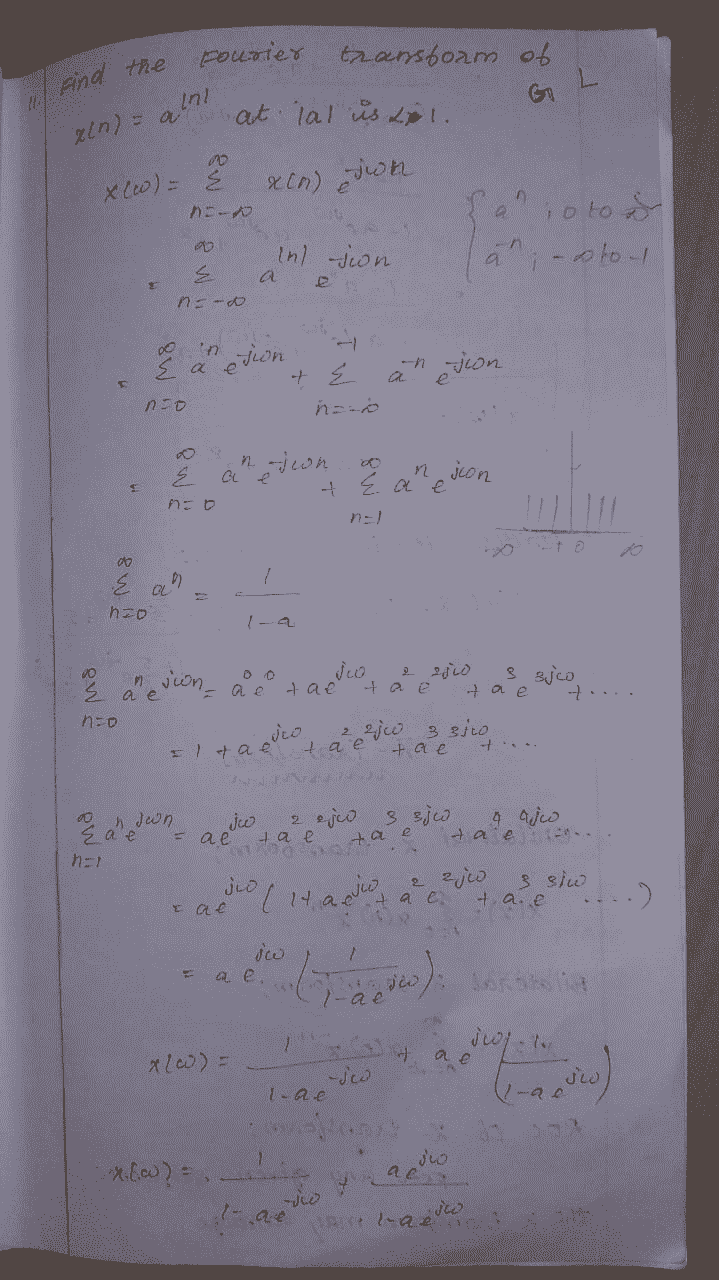 11. Find the Fourier transform of
x(n) = a^|n| at |a| is < 1.
x(ω) = Σ_{n=-∞}^{∞} x(n) e^{-jωn}
{ a^n ; 0 to ∞
= Σ_{n=-∞}^{∞} a^{|n|} e^{-jωn}
a^{-n} ; -∞ to -1
= Σ_{n=0}^{∞} a^n e^{-jωn} + Σ_{n=-∞}^{-1} a^{-n} e^{-jωn}
= Σ_{n=0}^{∞} a^n e^{-jωn} + Σ_{n=1}^{∞} a^n e^{jωn}
-∞ -1 0 ∞
Σ_{n=0}^{∞} a^n = 1/(1-a)
Σ_{n=0}^{∞} a^n e^{jωn} = a^0 e^0 + a e^{jω} + a^2 e^{2jω} + a^3 e^{3jω} + ....
= 1 + a e^{jω} + a^2 e^{2jω} + a^3 e^{3jω} + ....
Σ_{n=1}^{∞} a^n e^{jωn} = a e^{jω} + a^2 e^{2jω} + a^3 e^{3jω} + a^4 e^{4jω} ....
= a e^{jω} (1 + a e^{jω} + a^2 e^{2jω} + a^3 e^{3jω} ....)
= a e^{jω} (1/(1-a e^{jω}))
x(ω) = 1/(1-a e^{-jω}) + a e^{jω} (1/(1-a e^{jω}))
x(ω) = 1/(1-a e^{-jω}) + a e^{jω}/(1-a e^{jω})